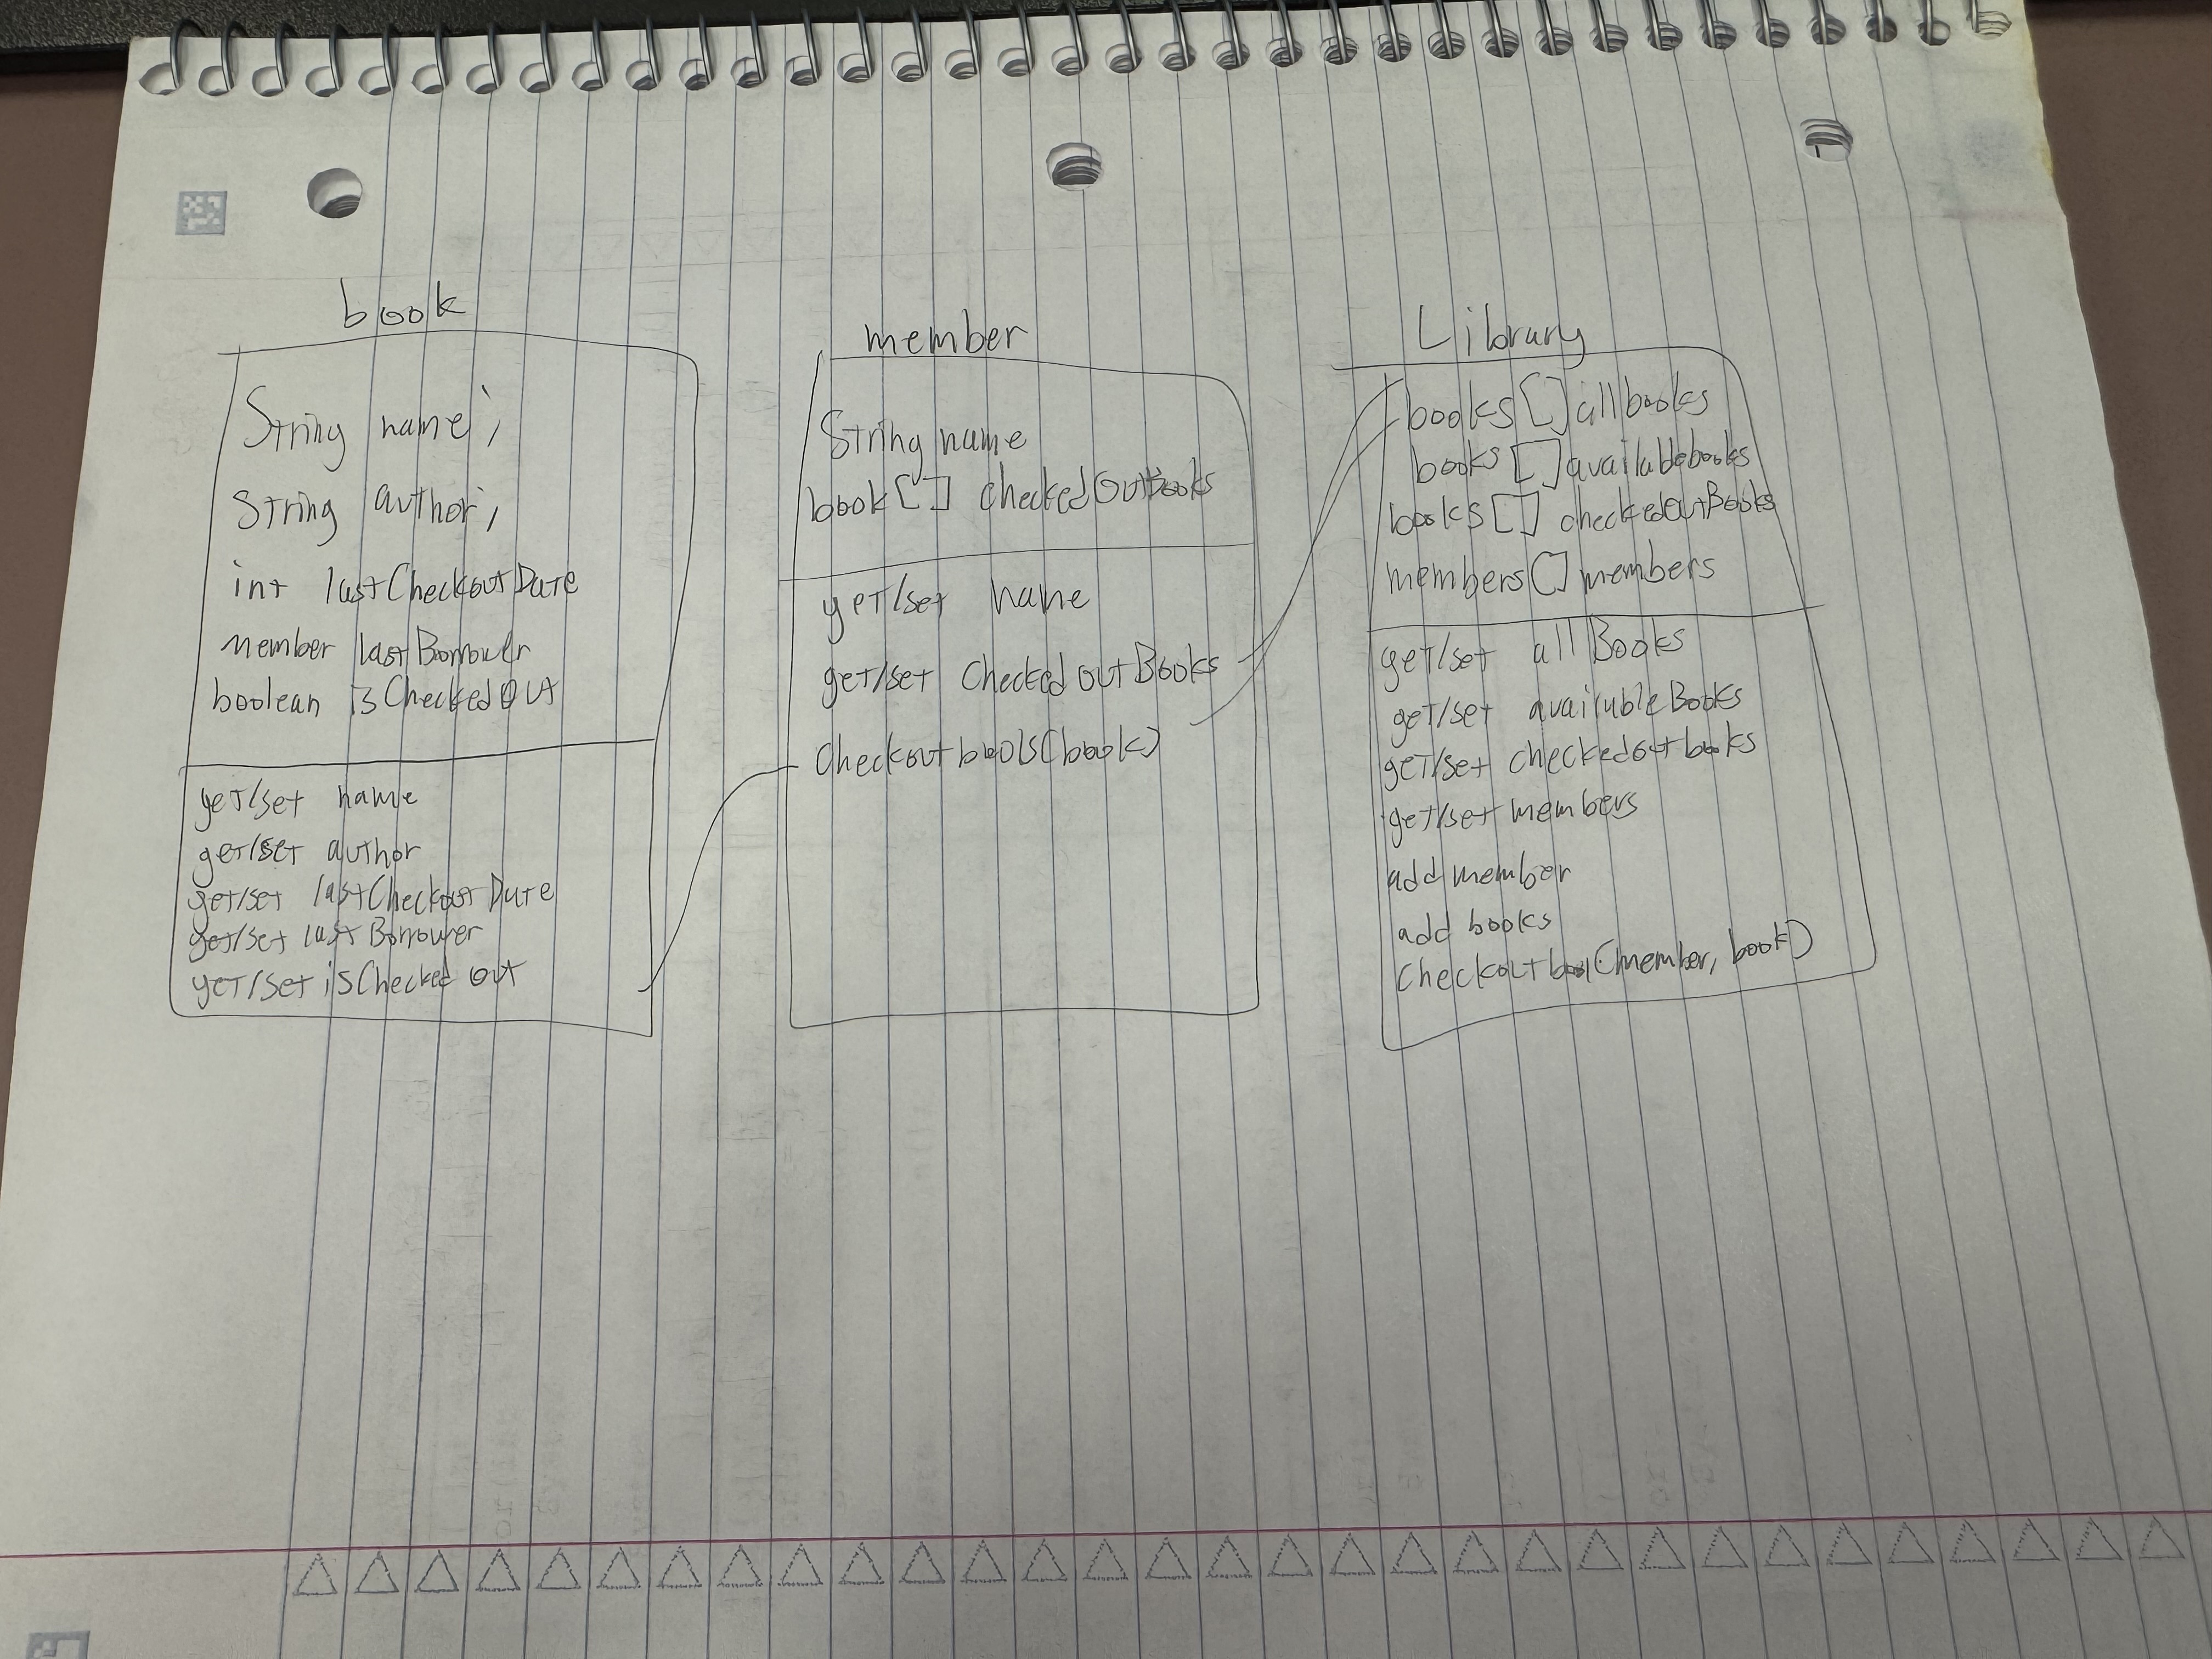 book
String name;
String author;
int lastCheckoutDate
member lastBorrower
boolean isCheckedOut
get/set name
get/set author
get/set lastCheckoutDate
get/set lastBorrower
get/set isChecked out
member
String name
book[] checkedOutBooks
get/set name
get/set CheckedoutBooks
Checkout books(book)
Library
books[] allbooks
books[] availablebooks
books[] checkedoutBooks
members[] members
get/set allBooks
get/set availableBooks
get/set checkedoutbooks
get/set members
add member
add books
Checkout book(member, book)